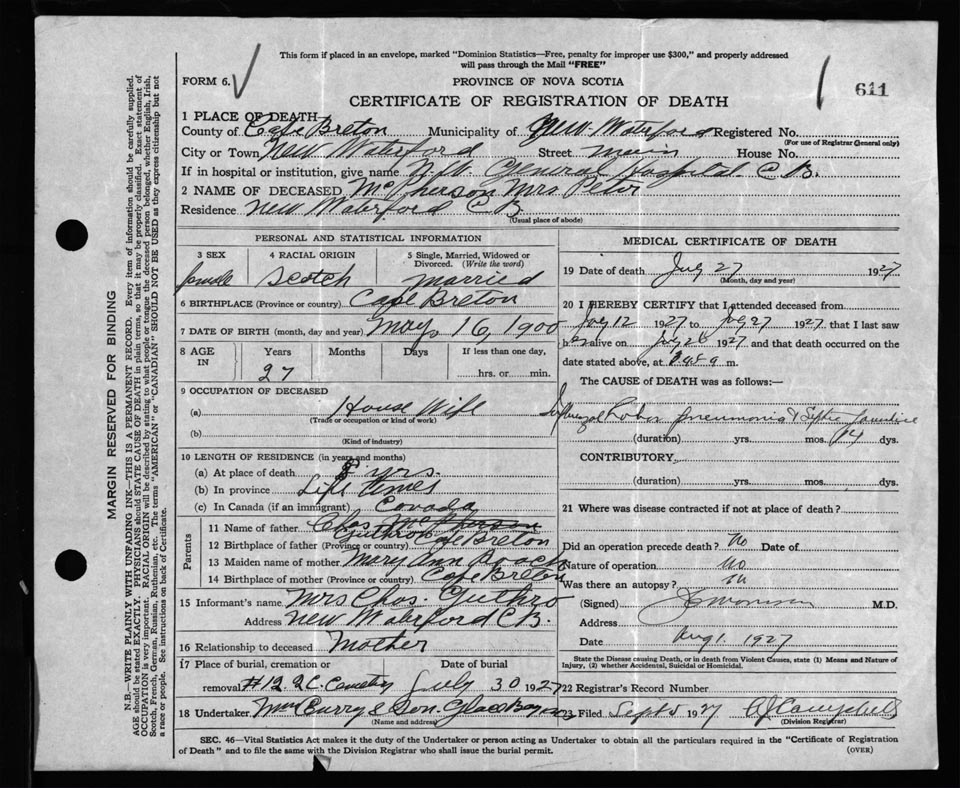 This form if placed in an envelope, marked "Dominion Statistics—Free, penalty for improper use $300," and properly addressed
will pass through the Mail "FREE"
FORM 6.
PROVINCE OF NOVA SCOTIA
611
CERTIFICATE OF REGISTRATION OF DEATH
1 PLACE OF DEATH—
County of Cape Breton Municipality of New Waterford Registered No.
(For use of Registrar General only)
City or Town New Waterford Street main House No.
If in hospital or institution, give name N.W. General Hospital C B.
2 NAME OF DECEASED McPherson Mrs Peter
Residence New Waterford C.B
(Usual place of abode)
PERSONAL AND STATISTICAL INFORMATION
3 SEX 4 RACIAL ORIGIN 5 Single, Married, Widowed or
Divorced. (Write the word)
female Scotch married
6 BIRTHPLACE (Province or country) Cape Breton
7 DATE OF BIRTH (month, day and year) May, 16, 1900
8 AGE IN Years Months Days If less than one day,
27 hrs. or min.
9 OCCUPATION OF DECEASED
(a) House Wife
(Trade or occupation or kind of work)
(b)
(Kind of industry)
10 LENGTH OF RESIDENCE (in years and months)
(a) At place of death 8 yrs.
(b) In province Life times
(c) In Canada (if an immigrant) Canada
Parents
11 Name of father Chas McPherson
Guthro
12 Birthplace of father (Province or country) Cape Breton
13 Maiden name of mother Mary Ann Roach
14 Birthplace of mother (Province or country) Cape Breton
15 Informant's name Mrs Chas. Guthro
Address New Waterford C B.
16 Relationship to deceased Mother
17 Place of burial, cremation or Date of burial
removal #12. R C Cemetry July 30 1927
18 Undertaker McCurry & Son. Glace Bay
(Name and address)
MEDICAL CERTIFICATE OF DEATH
19 Date of death July 27 1927
(Month, day and year)
20 I HEREBY CERTIFY that I attended deceased from
July 12 1927 to July 27 1927 that I last saw
her alive on July 26 1927 and that death occurred on the
date stated above, at m.
The CAUSE of DEATH was as follows:—
Influenza Lobar pneumonia & Septic Jaundice
(duration) yrs. mos. 14 dys.
CONTRIBUTORY.
(duration) yrs. mos. dys.
21 Where was disease contracted if not at place of death?
Did an operation precede death? No Date of
Nature of operation No
Was there an autopsy? no
(Signed) M.D.
Address
Date Aug 1. 1927
State the Disease causing Death, or in death from Violent Causes, state (1) Means and Nature of
Injury, (2) whether Accidental, Suicidal or Homicidal.
22 Registrar's Record Number
23 Filed Sept 5 1927 Campbell
(Division Registrar)
SEC. 46—Vital Statistics Act makes it the duty of the Undertaker or person acting as Undertaker to obtain all the particulars required in the "Certificate of Registration
of Death" and to file the same with the Division Registrar who shall issue the burial permit. (OVER)
MARGIN RESERVED FOR BINDING
N.B.—WRITE PLAINLY WITH UNFADING INK—THIS IS A PERMANENT RECORD. Every item of information should be carefully supplied.
AGE should be stated EXACTLY. PHYSICIANS should STATE CAUSE OF DEATH in plain terms, so that it may be properly classified. Exact statement of
OCCUPATION is very important. RACIAL ORIGIN will be described by stating to what people or tongue the deceased person belonged, whether English, Irish,
Scotch, French, German, Russian, Ruthenian, etc. The terms "AMERICAN" or "CANADIAN" SHOULD NOT BE USED as they express citizenship but not
a race or people. See instructions on back of Certificate.